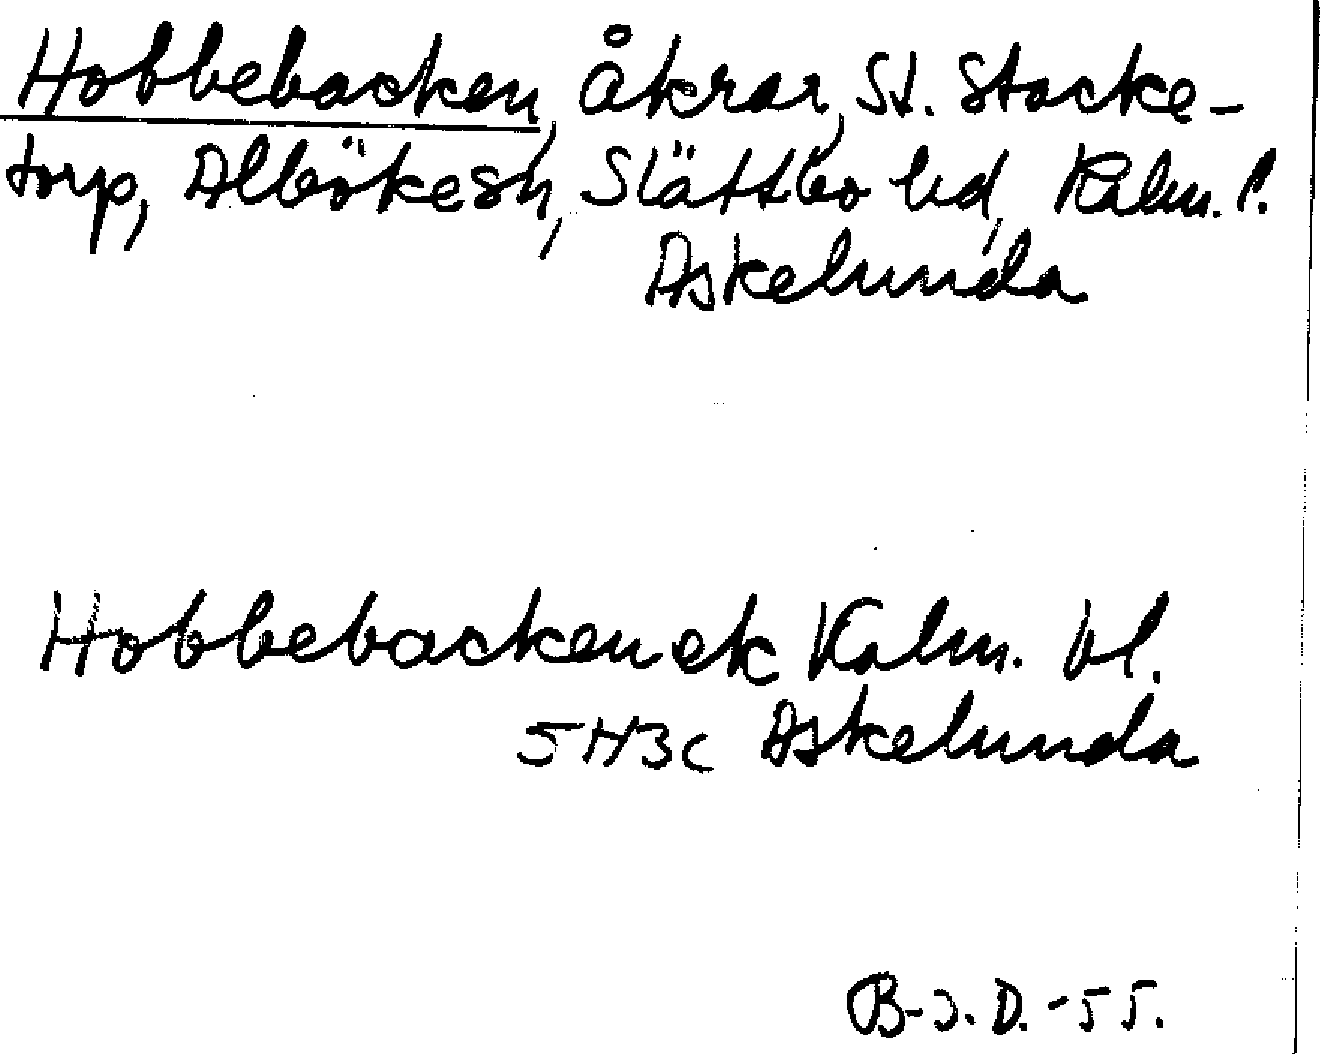 Hobbebacken, Åkrar, St. Stacke-
torp, Alböke sn, Slättbo hd, Kalm. l.
Askelunda
Hobbebacken ek Kalm. bl.
5H3c Askelunda
B-J. D. -55.